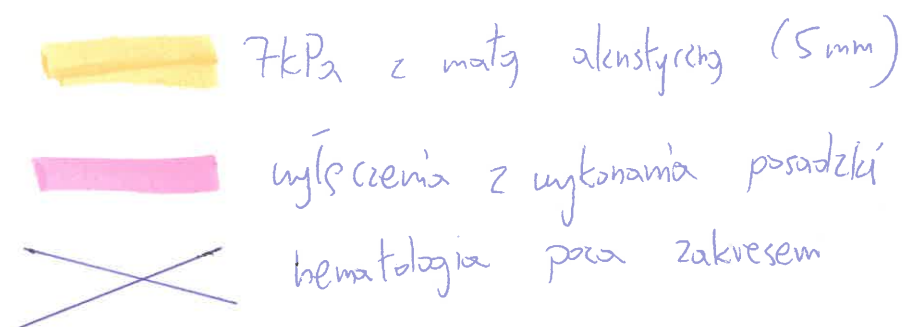 7kPa z matą akustyczną (5mm)
wyłączenia z wykonania posadzki
hematologia poza zakresem